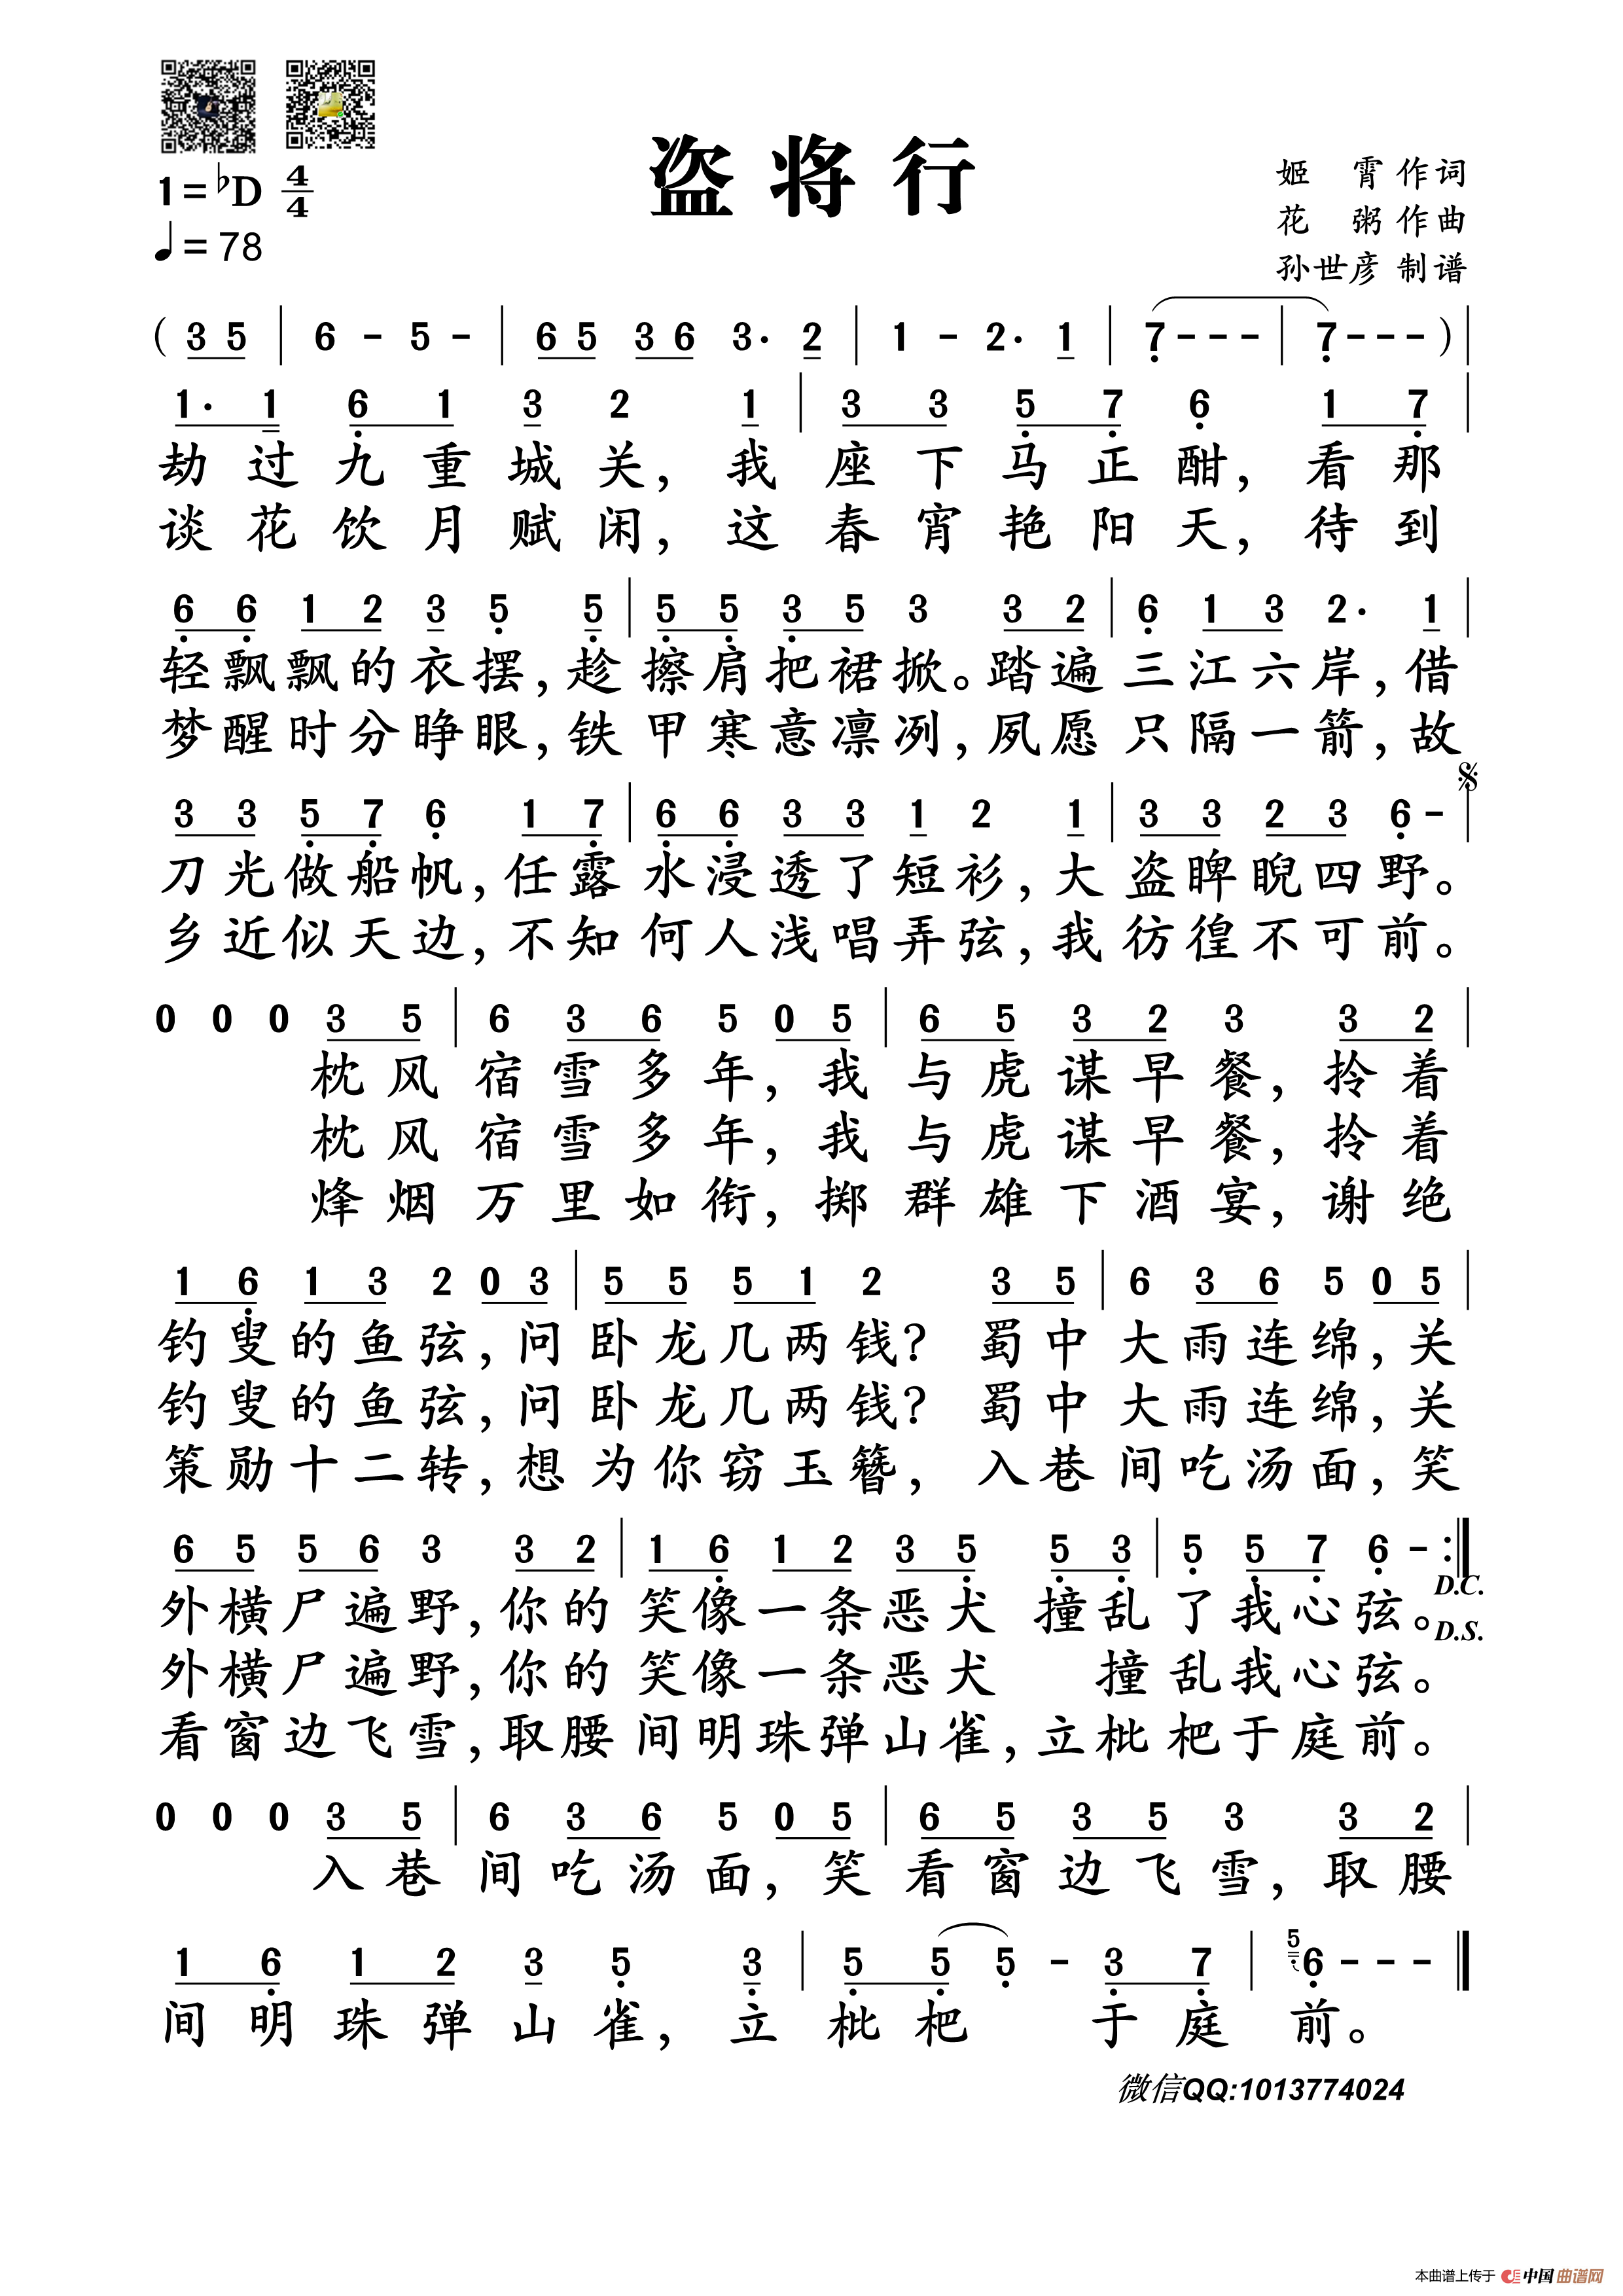 盗将行
1=♭D 4/4
♩=78
姬 霄 作词
花 粥 作曲
孙世彦 制谱
( 3 5 | 6 - 5 - | 6 5 3 6 3· 2 | 1 - 2· 1 | 7 - - - | 7 - - - ) |
1· 1 6 1 3 2 1 | 3 3 5 7 6 1 7 |
劫过九重城关，我座下马正酣，看那
谈花饮月赋闲，这春宵艳阳天，待到
6 6 1 2 3 5 5 | 5 5 3 5 3 3 2 | 6 1 3 2· 1 |
轻飘飘的衣摆，趁擦肩把裙掀。踏遍三江六岸，借
梦醒时分睁眼，铁甲寒意凛冽，夙愿只隔一箭，故
3 3 5 7 6 1 7 | 6 6 3 3 1 2 1 | 3 3 2 3 6 - |
刀光做船帆，任露水浸透了短衫，大盗睥睨四野。
乡近似天边，不知何人浅唱弄弦，我彷徨不可前。
0 0 0 3 5 | 6 3 6 5 0 5 | 6 5 3 2 3 3 2 |
枕风宿雪多年，我与虎谋早餐，拎着
枕风宿雪多年，我与虎谋早餐，拎着
烽烟万里如衔，掷群雄下酒宴，谢绝
1 6 1 3 2 0 3 | 5 5 5 1 2 3 5 | 6 3 6 5 0 5 |
钓叟的鱼弦，问卧龙几两钱？蜀中大雨连绵，关
钓叟的鱼弦，问卧龙几两钱？蜀中大雨连绵，关
策勋十二转，想为你窃玉簪，入巷间吃汤面，笑
6 5 5 6 3 3 2 | 1 6 1 2 3 5 5 3 | 5 5 7 6 - :|
外横尸遍野，你的笑像一条恶犬 撞乱了我心弦。D.C.
D.S.
外横尸遍野，你的笑像一条恶犬 撞乱我心弦。
看窗边飞雪，取腰间明珠弹山雀，立枇杷于庭前。
0 0 0 3 5 | 6 3 6 5 0 5 | 6 5 3 5 3 3 2 |
入巷间吃汤面，笑看窗边飞雪，取腰
1 6 1 2 3 5 3 | 5 5 5 - 3 7 | 5 6 - - - |
间明珠弹山雀，立枇杷 于庭前。
微信QQ:1013774024
本曲谱上传于 中国曲谱网